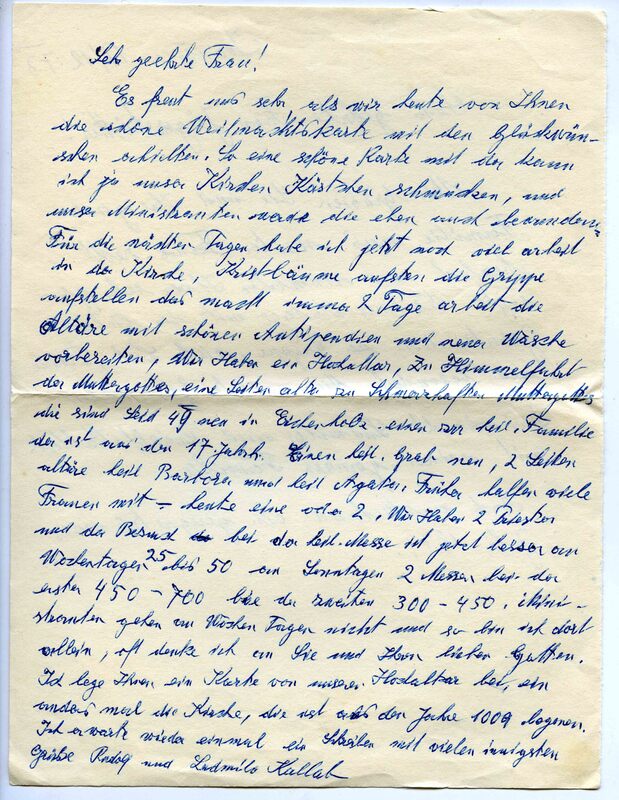 Sehr geehrte Frau!
Es freut uns sehr als wir heute von Ihnen
die schöne Weihnachtskarte mit den Glückwün-
schen erhilten. So eine schöne Karte mit der kann
ich ja unser Kirchen Kästchen schmücken, und
unser Ministranten werde die eben auch bewundern
Für die nächten Tagen habe ich jetzt noch viel arbeit
in der Kirche, Kristbäume aufsten die Grippe
aufstellen das macht immer 2 Tage arbeit die
Altäre mit schönen Antipendien und neuer Wäsche
vorbereiten, Wir Haben ein Hochaltar, zu Himmelfahrt
der Muttergottes, eine Seiten altar zu Schmerzhaften Muttergottes
die sind Seid neu in Eichenholz einen zur heil. Familie
der ist aus den 17 Jahrh. Einen heil. Grab neu, 2 Seiten
altäre heil Barbara und heil Agatha. Früher halfen viele
Frauen mit – heute eine oder 2. Wir Haben 2 Priester
und der Besuch bei der heil. Messe ist jetzt besser am
Wochentagen 25 bis 50 am Sonntagen 2 Messen bei der
ersten 450 – 700 bei der zweiten 300 – 450. Mini-
stranten gehen am Wochen Tagen nicht und so bin ich dort
allein, oft denke ich an Sie und Ihren lieben Gatten.
Ich lege Ihnen ein Karte von unseren Hochaltar bei, ein
anders mal die Kirche, die ist aus den Jahre 1009
Ich erwarte wieder einmal ein Schreiben mit vielen innigsten
Grüße Rudolf und Ludmila Kallab